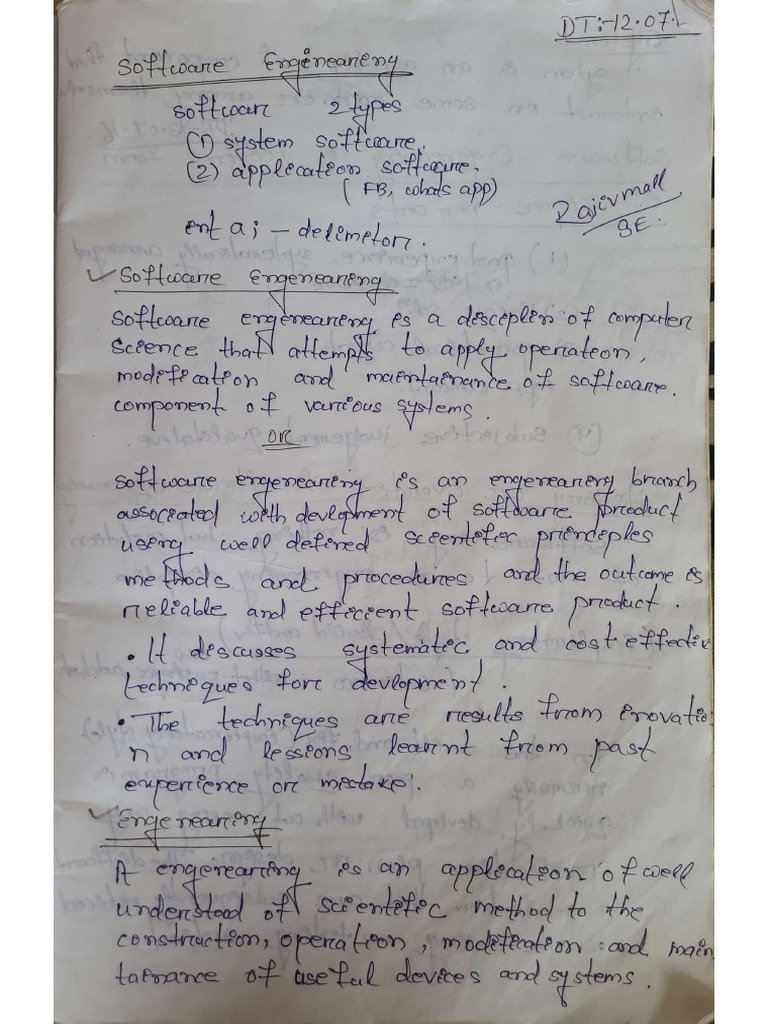 DT:-12.07.1
Software Engineareng
Softwarr 2 types
(1) system software.
(2) application software.
(FB, whats app)
Rajiv mall
SE.
int a; - delimeter.
Software Engenearing
Software engenearing is a disceplin of computer
science that attempts to apply operation,
modification and maintainance of software.
component of various systems.
or
Software engenearing is an engenearing branch
associated with devlopment of software product
using well defined scientific principles
methods and procedures and the outcome is
reliable and efficient software product.
• It discusses systematic and cost effectiv
techniques for devlopment.
• The techniques are results from inovatio
n and lessions learnt from past
experience or mistake.
Engenearing
A engenearing is an application of well
understood of scientific method to the
construction, operation, modification and main
tainance of useful devices and systems.